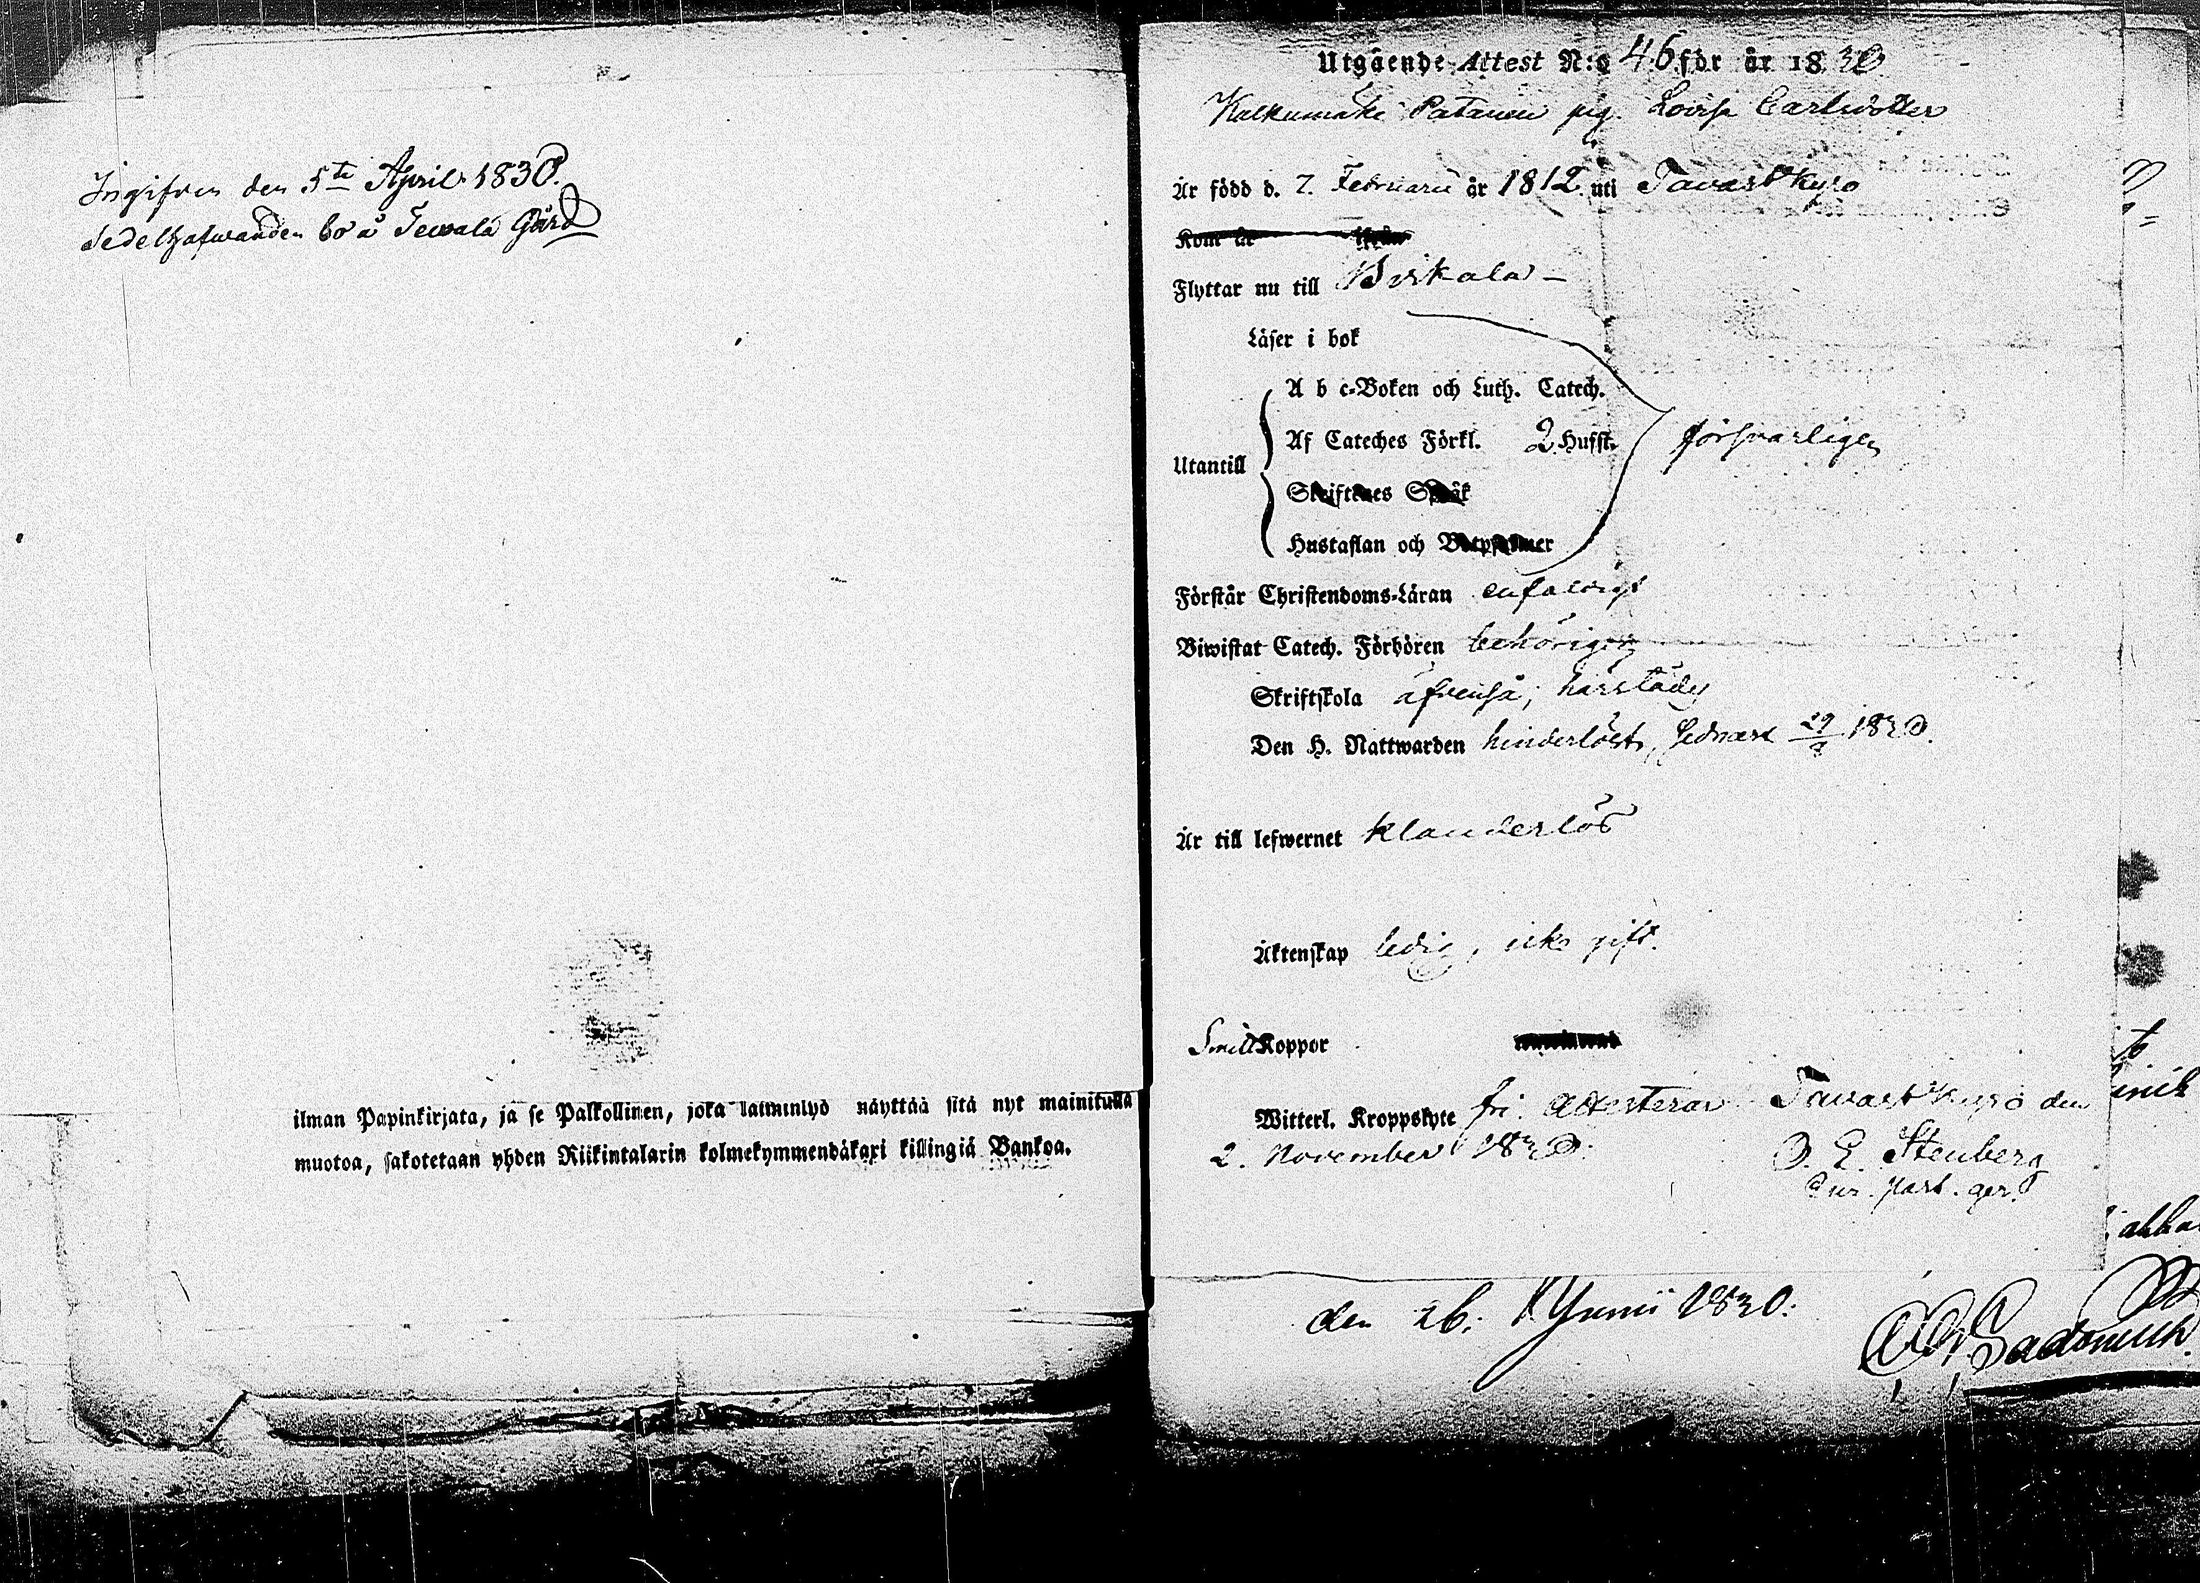 Ingifven den 5te April 1830.
Sedelhafwanden bo å Tewala Gård
ilman Papinkirjata, ja se Palkollinen, joka laiminlyö näyttää sitä nyt mainitulla
muotoa, sakotetaan yhden Riikintalarin kolmekymmendäkaxi killingiä Bankoa.
Utgående Attest N:o 46 för år 1830
Kalkumäki Patanen pig. Lovisa Carlsdotter
Är född d. 7. Februarii år 1812 uti Tavastkyro
Kom år från
Flyttar nu till Birkala
Läser i bok
A b c-Boken och Luth. Catech.
Af Cateches Förkl. 2 Hufst. försvarligen
Utantill
Skriftenes Språk
Hustaflan och Botpsalmer
Förstår Christendoms-Läran enfaldigt
Biwistat Catech. Förhören behörigen
Skriftskola äfvenså, härstädes
Den H. Nattwarden hinderlöst, sednast 29/8 1830.
Är till lefwernet klanderlös
Äktenskap ledig, icke gift.
Smitt Koppor
Witterl. Kroppslyte fri. Attesterar Tavastkyrö den
2. November 1830. B. E. Stenberg
Cur. past. ger.
den 26. Junii 1830.